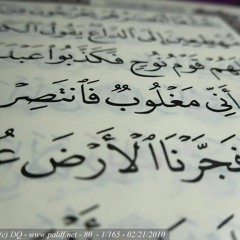 مُّهْطِعِينَ إِلَى ٱلدَّاعِ يَقُولُ ٱلْكَـ
هُمْ قَوْمُ نُوحٍ فَكَذَّبُوا۟ عَبْد
أَنِّى مَغْلُوبٌ فَٱنتَصِرْ
فَجَّرْنَا ٱلْأَرْضَ عُ
(c) DQ - www.paldf.net - 80 - 1/165 - 02/21/2010